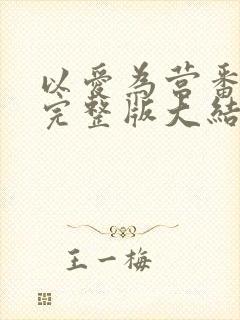 以爱为营番
完整版大结
王一梅